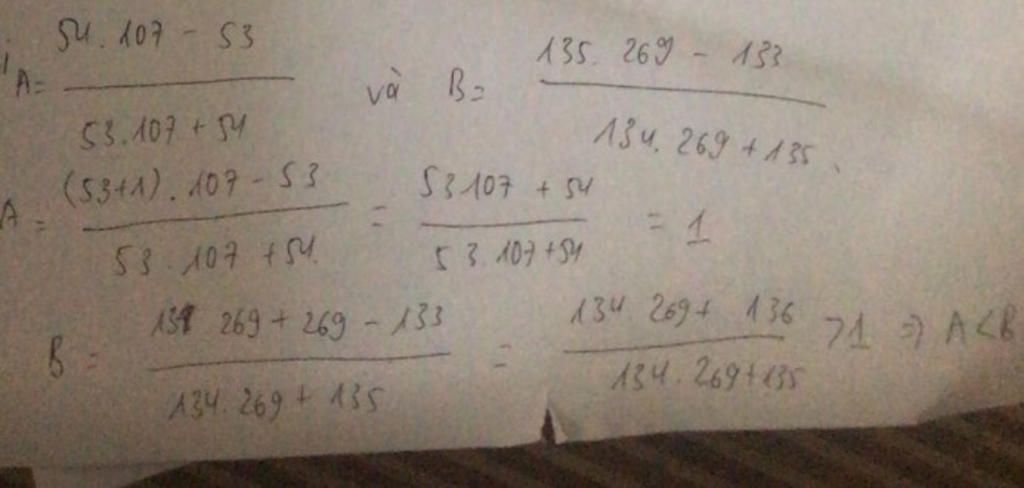 A = \frac{54.107 - 53}{53.107 + 54} và B = \frac{135.269 - 133}{134.269 + 135}
A = \frac{(53+1).107 - 53}{53.107 + 54} = \frac{53.107 + 54}{53.107 + 54} = 1
B = \frac{134 269 + 269 - 133}{134.269 + 135} = \frac{134 269 + 136}{134.269 + 135} > 1 ⇒ A < B